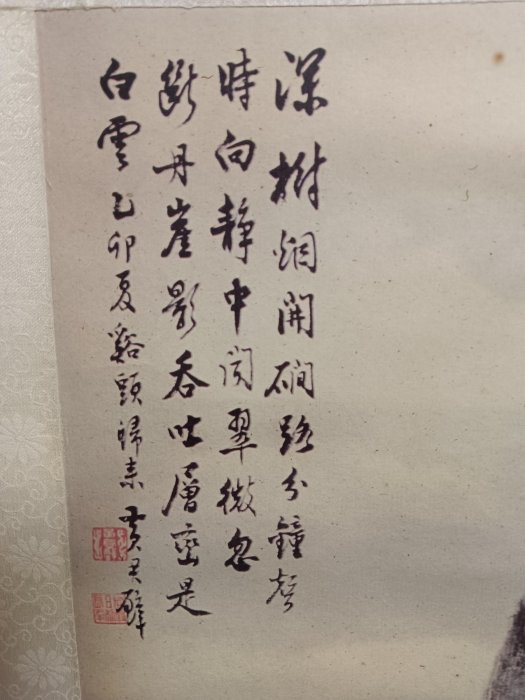 深樹烟開磵路分鐘聲
時向靜中聞翠微忽
斷丹崖影吞吐層巒是
白雲乙卯夏谿頭歸來黃君璧